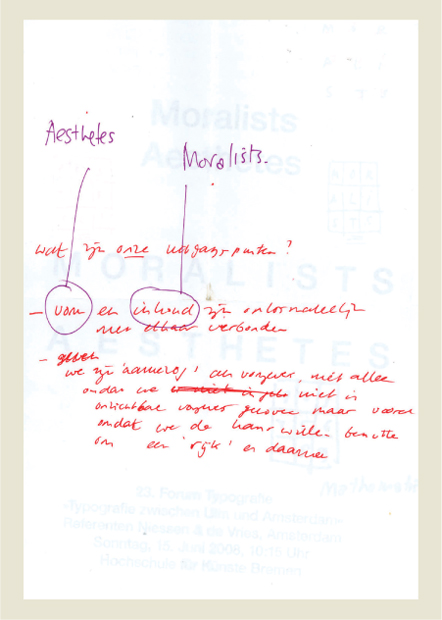 Moralists
Aesthetes
Aesthetes
Moralists.
wat zijn onze uitgangspunten?
MORALISTS
– vorm en inhoud zijn onlosmakelijk
met elkaar verbonden
AESTHETES
–
we zijn 'aanwezig' als vormgever, niet alleen
omdat we niet in
onzichtbare vormgever geloven maar vooral
omdat we de kans willen benutten
om een 'rijk' en daarmee
23. Forum Typografie
»Typografie zwischen Ulm und Amsterdam«
Referenten Niessen & de Vries, Amsterdam
Sonntag, 15. Juni 2008, 16:15 Uhr
Hochschule für Künste Bremen